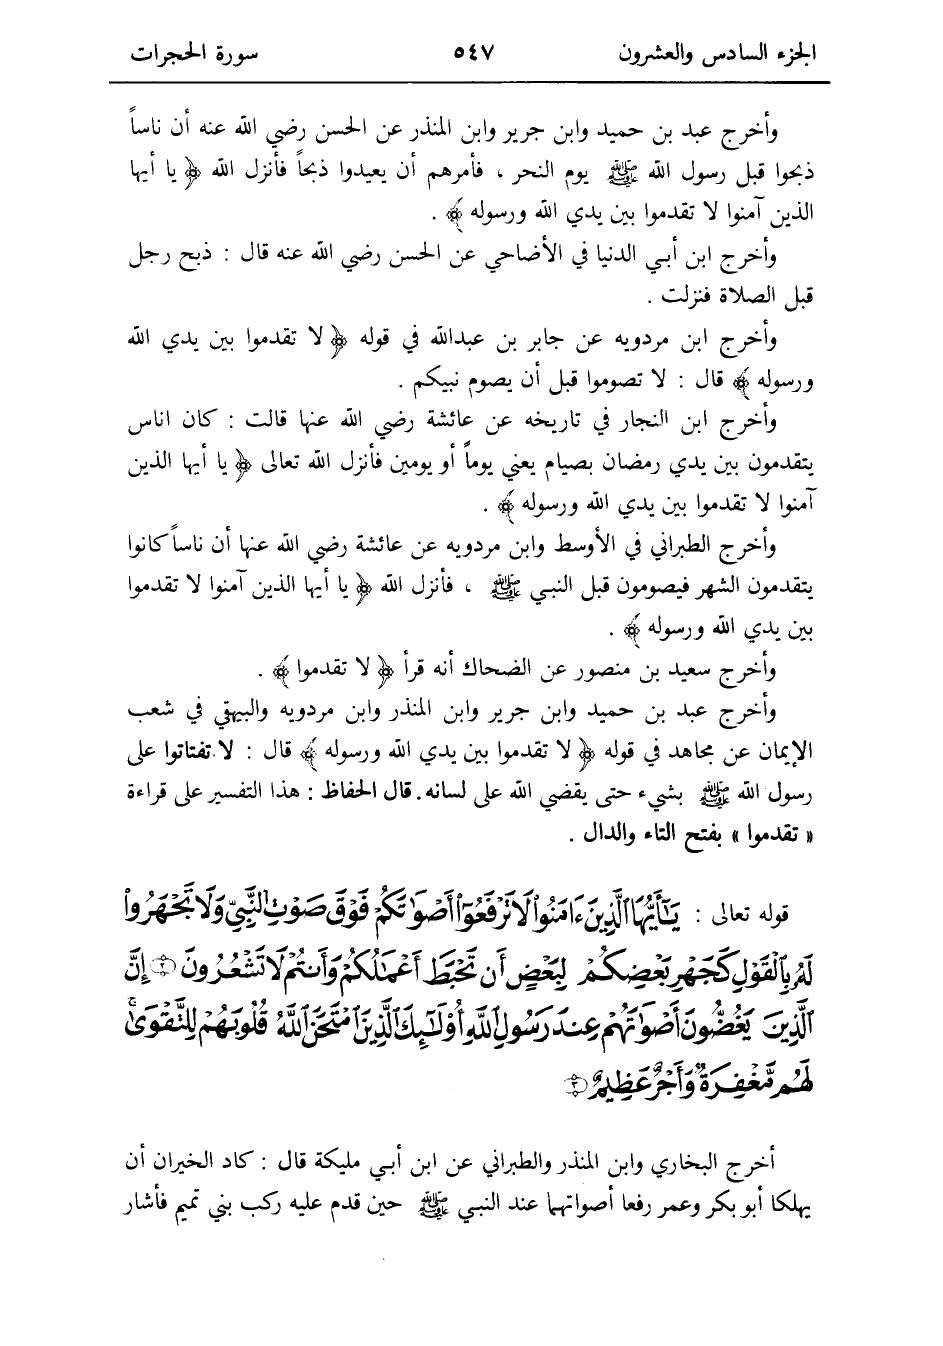 الجزء السادس والعشرون ٥٤٧ سورة الحجرات
وأخرج عبد بن حميد وابن جرير وابن المنذر عن الحسن رضي الله عنه أن ناساً
ذبحوا قبل رسول الله ﷺ يوم النحر ، فأمرهم أن يعيدوا ذبحاً فأنزل الله ﴿ يا أيها
الذين آمنوا لا تقدموا بين يدي الله ورسوله ﴾ .
وأخرج ابن أبـي الدنيا في الأضاحي عن الحسن رضي الله عنه قال : ذبح رجل
قبل الصلاة فنزلت .
وأخرج ابن مردويه عن جابر بن عبدالله في قوله ﴿ لا تقدموا بين يدي الله
ورسوله ﴾ قال : لا تصوموا قبل أن يصوم نبيكم .
وأخرج ابن النجار في تاريخه عن عائشة رضي الله عنها قالت : كان اناس
يتقدمون بين يدي رمضان بصيام يعني يوماً أو يومين فأنزل الله تعالى ﴿ يا أيها الذين
آمنوا لا تقدموا بين يدي الله ورسوله ﴾ .
وأخرج الطبراني في الأوسط وابن مردويه عن عائشة رضي الله عنها أن ناساً كانوا
يتقدمون الشهر فيصومون قبل النبـي ﷺ ، فأنزل الله ﴿ يا أيها الذين آمنوا لا تقدموا
بين يدي الله ورسوله ﴾ .
وأخرج سعيد بن منصور عن الضحاك أنه قرأ ﴿ لا تقدموا ﴾ .
وأخرج عبد بن حميد وابن جرير وابن المنذر وابن مردويه والبيهقي في شعب
الإيمان عن مجاهد في قوله ﴿ لا تقدموا بين يدي الله ورسوله ﴾ قال : لا تفتاتوا على
رسول الله ﷺ بشيء حتى يقضي الله على لسانه . قال الحفاظ : هذا التفسير على قراءة
« تقدموا » بفتح التاء والدال .
قوله تعالى : يَٰٓأَيُّهَا ٱلَّذِينَ ءَامَنُوا۟ لَا تَرْفَعُوٓا۟ أَصْوَٰتَكُمْ فَوْقَ صَوْتِ ٱلنَّبِيِّ وَلَا تَجْهَرُوا۟
لَهُۥ بِٱلْقَوْلِ كَجَهْرِ بَعْضِكُمْ لِبَعْضٍ أَن تَحْبَطَ أَعْمَٰلُكُمْ وَأَنتُمْ لَا تَشْعُرُونَ ٢ إِنَّ
ٱلَّذِينَ يَغُضُّونَ أَصْوَٰتَهُمْ عِندَ رَسُولِ ٱللَّهِ أُو۟لَٰٓئِكَ ٱلَّذِينَ ٱمْتَحَنَ ٱللَّهُ قُلُوبَهُمْ لِلتَّقْوَىٰ ۚ
لَهُم مَّغْفِرَةٌ وَأَجْرٌ عَظِيمٌ ٣
أخرج البخاري وابن المنذر والطبراني عن ابن أبـي مليكة قال : كاد الخيران أن
يهلكا أبو بكر وعمر رفعا أصواتهما عند النبـي ﷺ حين قدم عليه ركب بني تميم فأشار